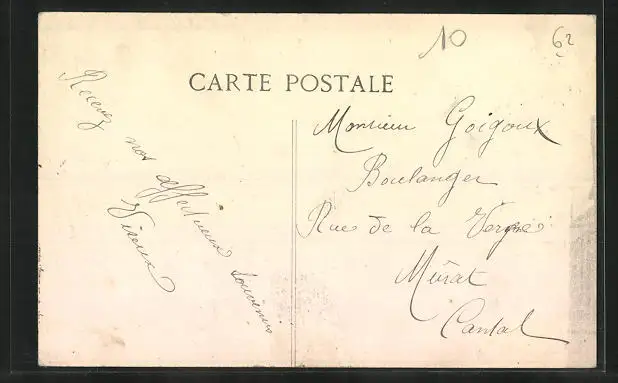 10
62
CARTE POSTALE
Recevez nos affectueux souvenirs
Monsieur Goigoux
Boulanger
Rue de la Vergne
Murat
Cantal